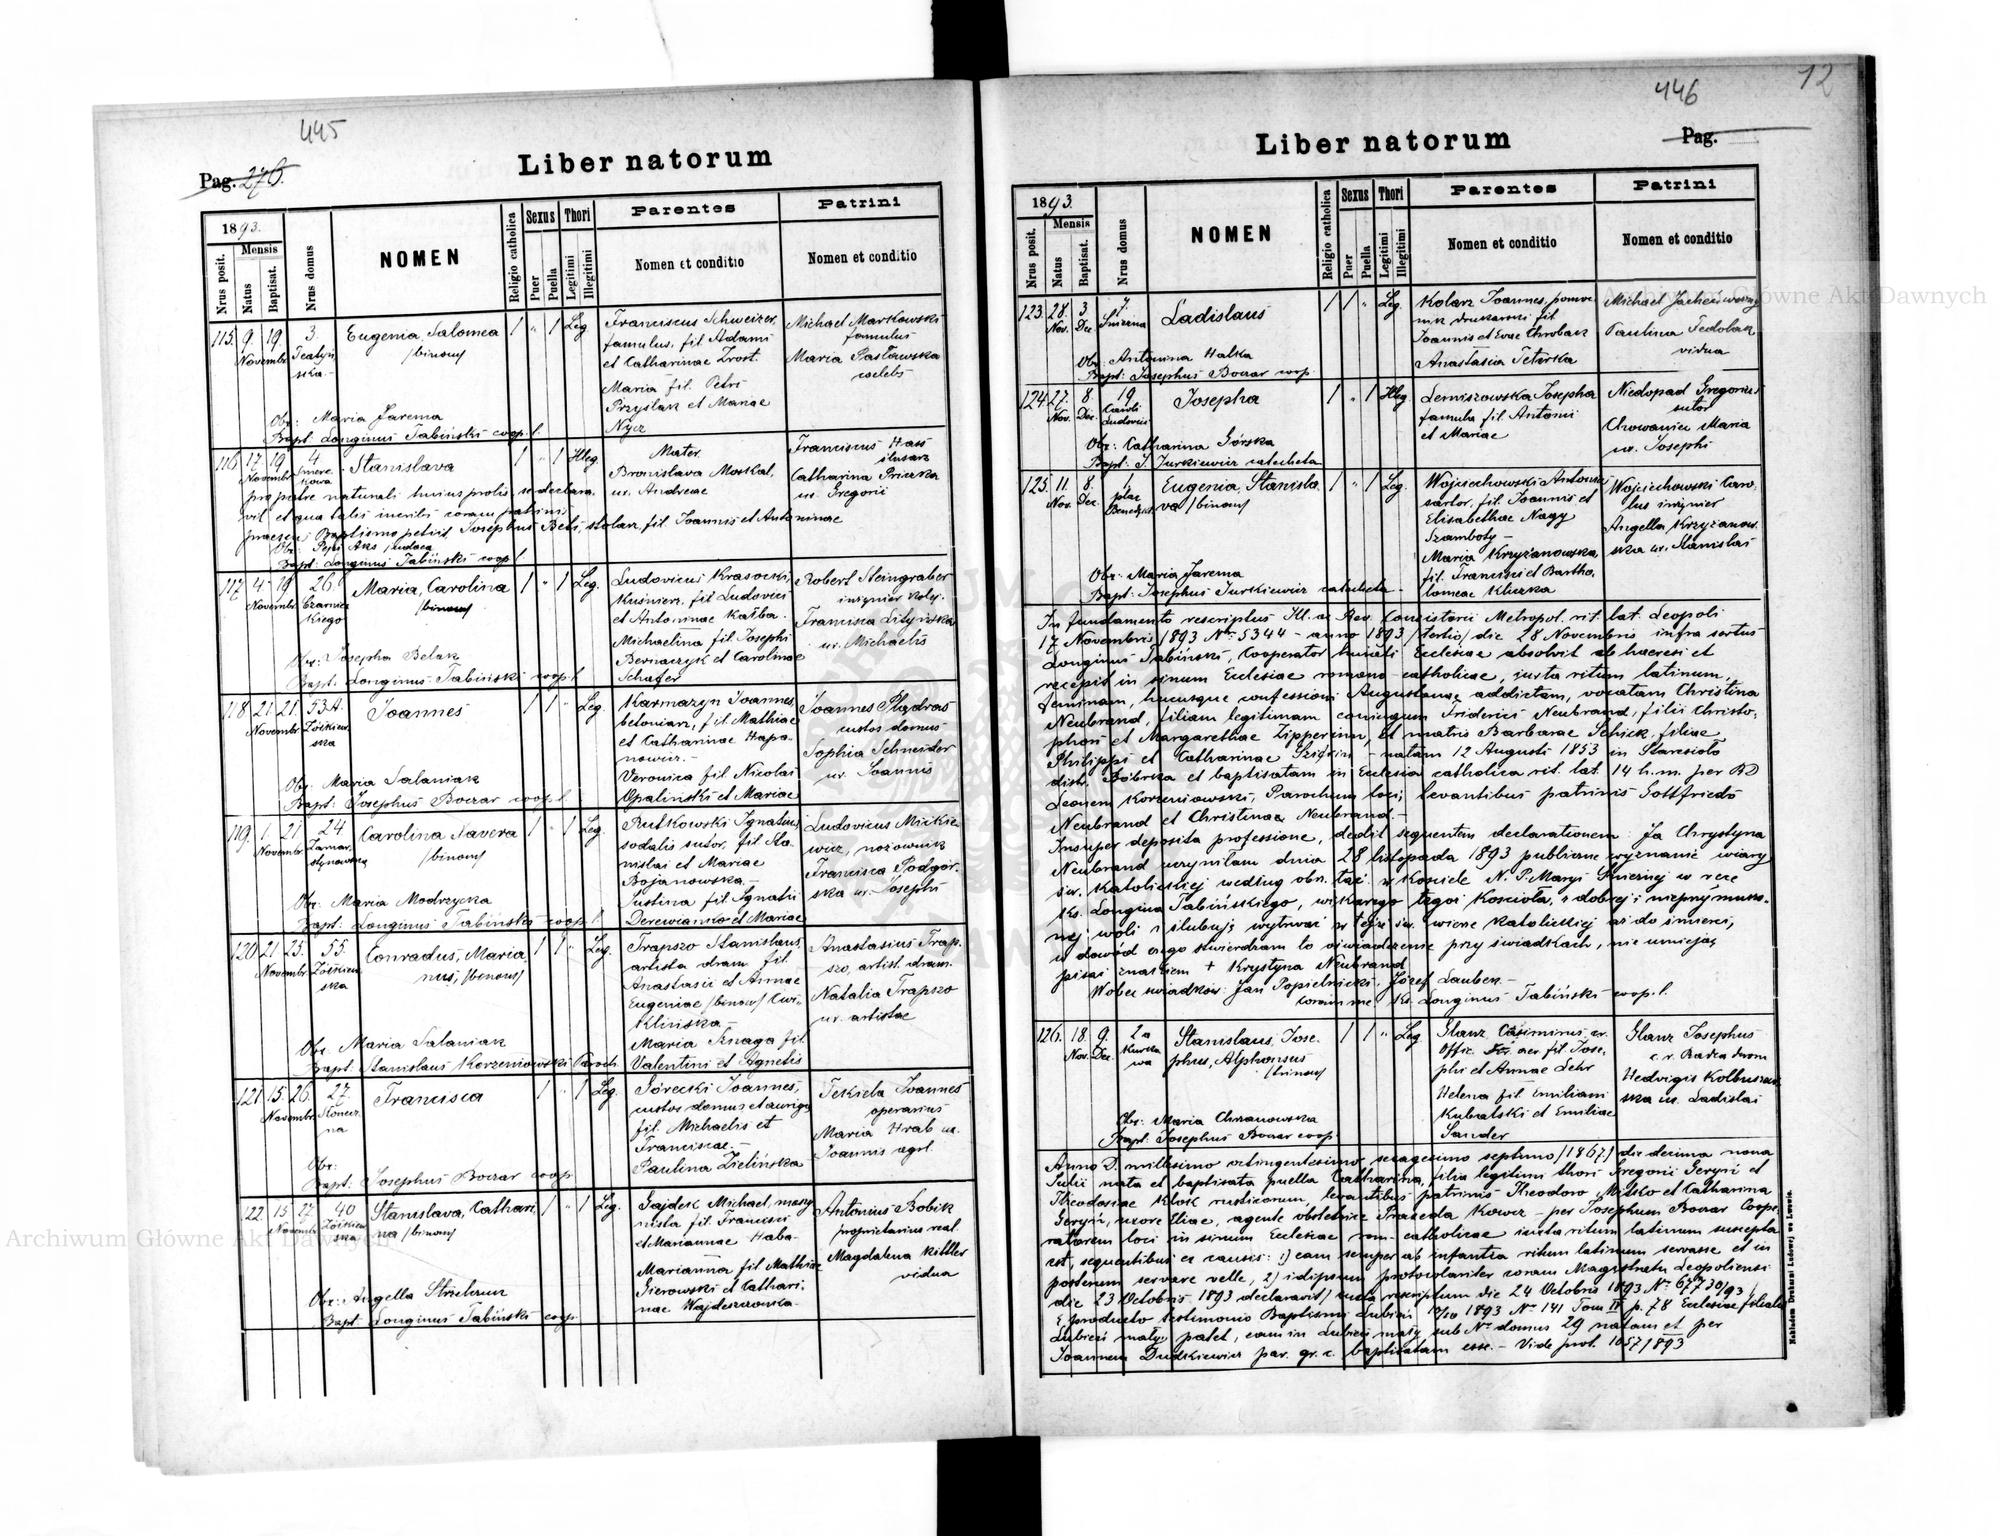 445
Pag. 276.
Liber natorum
1893.
Mensis
Nrus posit.
Natus
Baptisat.
Nrus domus
NOMEN
Religio catholica
Sexus
Puer
Puella
Thori
Legitimi
Illegitimi
Parentes
Nomen et conditio
Patrini
Nomen et conditio
115. 9. 19. 3. Eugenia Salomea 1 " 1 Leg.
Novembr.
/binom/
Franciscus Schweizer,
famulus, fil. Adami
et Catharinae Zrost.
Maria fil. Petri
Przyślak et Mariae
Nycz
Michael Markowski
famulus
Maria Pasławska
coelebs
Obs: Maria Jarema
Bapt: Longinus Tabiński coop. l.
116. 17. 19. 4. Stanislava 1 " 1 Illeg.
Novembr.
Mater
Bronislava Moskal,
ux. Andreae
Franciscus Hass
ślusarz
Catharina
ux. Gregorii
pro patre naturali huius prolis, se declara
vit et qua talis inscribi coram patrinis
praesens Baptismo petiit, Josephus Bełz, stolarz, fil. Joannis et Antoninae
Bapt: Longinus Tabiński coop. l.
117. 4. 19. 26. Maria, Carolina 1 " 1 Leg.
Novembr. Czarniec
kiego
/binom/
Ludovicus Krasocki,
Kuśnierz, fil. Ludovici
et Antoninae Kałba.
Michaelina fil. Josephi
Bernaczyk et Carolinae
Schafer
Robert Steingraber
inżynier kolej.
Francisca Lityńska
ux. Michaelis
Obs: Josepha Belak
Bapt: Longinus Tabiński coop. l.
118. 21. 21. 53 A. Joannes 1 1 " Leg.
Novembr. Żółkiew
ska
Karmazyn Joannes,
betoniarz, fil. Mathiae
et Catharinae Hapa
nowicz.
Veronica fil. Nicolai
Opaliński et Mariae
Joannes Mądraś
custos domus
Sophia Schneider
ux. Joannis
Obs: Maria Salaniak
Bapt: Josephus Boczar coop. l.
119. 1. 21. 24 Carolina Xavera 1 " 1 Leg.
Novembr. Zamar
stynowska
/binom/
Rutkowski Ignatius,
sodalis sutor, fil. Sta
nislai et Mariae
Bojanowska.
Justina fil. Ignatii
Derewianko et Mariae
Ludovicus Mickie
wicz, nożownik
Francisca Podgór
ska ux. Josephi
Obs: Maria Modrzycka
Bapt: Longinus Tabiński coop. l.
120. 21. 25. 55. Conradus, Maria 1 1 " Leg.
Novembr. Żółkiew
ska
nus, /binom/
Trapszo Stanislaus,
artista dram. fil.
Anastasii et Annae
Eugeniae /binom/ Ćwi
klińska
Maria Knaga fil.
Valentini et Agnetis
Anastasius Trap
szo, artist. dram.
Natalia Trapszo
ux. artistae
Obs. Maria Salaniak
Bapt: Stanislaus Korzeniowski Paroch.
121. 15. 26. 27. Francisca 1 " 1 Leg.
Novembr. Słonecz
na
Górecki Joannes,
custos domus et auriga
fil. Michaelis et
Franciscae.
Paulina Zielińska
Tekiela Joannes
operarius
Maria Hrab ux.
Joannis agrl.
Obs:
Bapt: Josephus Boczar coop.
122. 15. 27. 40 Stanislava, Cathari 1 " 1 Leg.
Novembr. Żółkiew
ska
na /binom/
Gajdek Michael, masy
nista fil. Francisci
et Mariannae Haba
Marianna fil. Mathiae
Gierowski et Cathari
nae Wajdeczowska
Antonius Bobik
proprietarius real.
Magdalena Kittler
vidua
Obs: Angella Strzelczuk
Bapt: Longinus Tabiński coop.
446
12
Pag.
Liber natorum
1893.
Mensis
Nrus posit.
Natus
Baptisat.
Nrus domus
NOMEN
Religio catholica
Sexus
Puer
Puella
Thori
Legitimi
Illegitimi
Parentes
Nomen et conditio
Patrini
Nomen et conditio
123. 28. 3. 7. Ladislaus 1 1 " Leg.
Nov. Dec. Śnieżna
Kolarz Joannes, pomoc
nik drukarski fil.
Joannis et Evae Chrobak
Anastasia Teterka
Michael
Paulina Fedolak
vidua
Obs: Antonina Halka
Bapt: Josephus Boczar coop.
124. 27. 8. 19 Josepha 1 " 1 Illeg.
Nov. Dec. Caroli
Ludovici
Lemiszowska Josepha
famula fil. Antonii
et Mariae
Niedopad Gregorius
sutor
Chowaniec Maria
ux. Josephi
Obs: Catharina Górska
Bapt: J. Jurkiewicz catecheta
125. 11. 8. 1 Eugenia, Stanisla 1 " 1 Leg.
Nov. Dec. plac
Benedykt.
va /binom/
Wojciechowski Antonius
sartor, fil. Joannis et
Elisabethae Nagy
Szamboty
Maria Krzyżanowska,
fil. Francisci et Bartho
lomeae Kliczka
Wojciechowski Caro
lus inżynier
Angella Krzyżanow
ska ux. Stanislai
Obs: Maria Jarema
Bapt: Josephus Jurkiewicz catecheta
In fundamento rescriptus Ill. ac Rev. Consistorii Metropol. rit. lat. Leopoli
17 Novembris 1893 No 5344 – anno 1893 /tertio/ die 28 Novembris infra scriptus
Longinus Tabiński, Cooperator huiati Ecclesiae absolvit ab haeresi et
recepit in sinum Ecclesiae romano-catholicae, iuxta ritum latinum,
feminam, hucusque confessioni Augustanae addictam, vocatam Christina
Neubrand, filiam legitimam coniugum Friderici Neubrand, filii Christo
phori et Margarethae Zipperinn, et matris Barbarae Schick, filiae
Philippi et Catharinae – natam 12 Augusti 1853 in Staresioło
distr. Bóbrka et baptisatam in Ecclesia catholica rit. lat. 14 h. m. per RD
Leonem Korzeniowski, Parochum loci; levantibus patrinis Gottfriedo
Neubrand et Christinae Neubrand.
Insuper deposita professione, dedit sequentem declarationem: Ja Chrystyna
Neubrand uczyniłam dnia 28 listopada 1893 publiczne wyznanie wiary
św. katolickiej według obrz. łać. w kościele N. P. Maryi Śnieżnej w ręce
ks. Longina Tabińskiego, wikarego tegoż kościoła, z dobrej i nieprzymuszo
nej woli i ślubuję wytrwać w tejże św. wierze katolickiej aż do śmierci,
w dowód czego stwierdzam to oświadczenie przy świadkach, nie umiejąc
pisać znakiem + Krystyna Neubrand
Wobec świadków: Jan Popielnicki, Józef Lauber.
coram me Ks. Longinus Tabiński coop. l.
126. 18. 9. 2a Stanislaus, Jose 1 1 " Leg.
Nov. Dec. Kurko
wa
phus, Alphonsus
/trinom/
Glanz Casimirus cr.
offic. fil. Jose
phi et Annae Lehr
Helena fil. Emiliani
Kubalski et Emiliae
Sander
Glanz Josephus
c. r. Radca
Hedvigis Kolbuszow
ska ux. Ladislai
Obs: Maria Chrzanowska
Bapt: Josephus Boczar coop.
Anno D. millesimo octingentesimo sexagesimo septimo /1867/ die decima nona
Julii nata et baptisata puella Catharina, filia legitimi thori Gregorii Geryń et
Theodosiae Kłok rusticorum, levantibus patrinis Theodoro Mitsko et Catharina
Geryń, uxore Eliae, agente obstetrice Praxeda Kowcz – per Josephum Boczar Coope
ratorem loci in sinum Ecclesiae rom-catholicae iuxta ritum latinum suscepta
est, sequentibus ex causis: 1) eam semper ab infantia ritum latinum servasse et in
posterum servare velle, 2) idipsum protocolariter coram Magistratu Leopoliensi
die 23 Octobris 1893 declaravit/ vide rescriptum die 24 Octobris 1893 No 67730/93/
E producto testimonio Baptismi Lubień 1893 No 141 Tom IV p. 78 Ecclesiae filialis
Lubień mały patet, eam in Lubień mały sub No domus 29 natam et per
Joannem Dudkiewicz par. gr. c. baptisatam esse. – Vide prot. 1057/893
Nakładem Drukarni Ludowej we Lwowie.
Archiwum Główne Akt Dawnych
Archiwum Główne Akt Dawnych